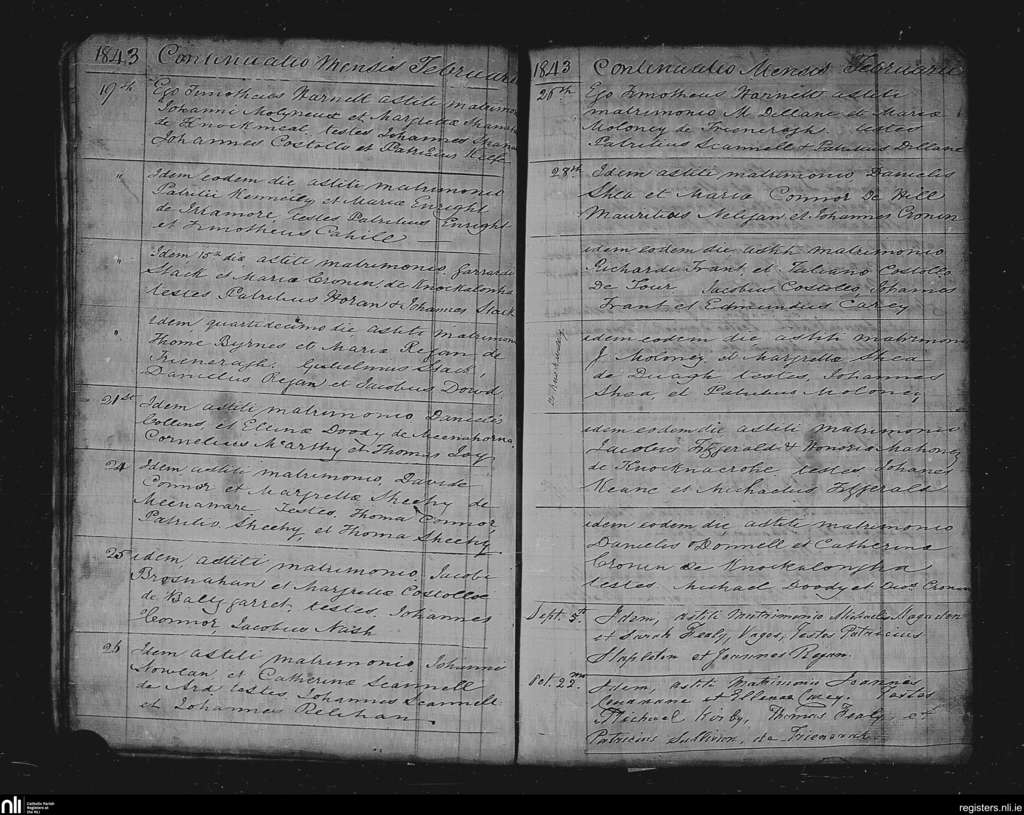 1843 Continuatio Mensis Februarii
19th Ego Timotheus Harnett astiti matrimonio
Johanni Molyneux et Margretta Shanahan
de Knockmeal. testes Johannes
Johannes Costollo et Patritius
" Idem eodem die astiti matrimonio
Patritii Kennelly et Maria Enright
de Irramore, testes Patritius Enright
et Timotheus Cahill
" Idem 15th die astiti matrimonio
Stack et Maria Cronin de Knockalougha
testes Patritius Horan & Johannes Stack
" Idem quartidecimo die astiti matrimonio
Thome Byrnes et Maria Regan de
Trieneragh. Gulielmus Stack,
Danielus Regan et Jacobus Dowd
21st Idem astiti matrimonio Danielis
Collins, et Ellena Doody de Meenahorna
Cornelius McArthy et Thomas Joy
24 Idem astiti matrimonio, Davide
Connor et Margretta Sheehy de
Testes, Thoma Connor,
Patritio Sheehy, et Thoma Sheehy
25 idem astiti matrimonio Jacobi
Brosnahan et Margretta Costolloe
de Ballygarret. testes, Johannes
Connor, Jacobus Nash
26 Idem astiti matrimonio, Johannis
Nowlan et Catherina Scannell
de Ard testes Johannes Scannell
et Johannes Relihan
1843 Continuatio Mensis Februarii
26th Ego Timotheus Harnett astiti
matrimonio M. Dillane et Maria
Moloney de Trieneragh. testes
Patritius Scannell & Patritius Dillane
28th Idem astiti matrimonio Danielis
Shea et Maria Connor De Kill
Mauritius Neligan et Johannes Cronin
idem eodem die astiti matrimonio
Richardi Frant, et Costollo
De Tour Jacobus Costollo, Johannes
Frant et Edmundus Carey
idem eodem die astiti matrimonio
J. Moloney et Margretta Shea
de Duagh testes, Johannes
Shea et Patritius Moloney
idem eodem die astiti matrimonio
Jacobus Fitzgerald & Honoria Mahoney
de Knocknacrohe testes Johanes
Keane et Michaelus Fitzgerald
idem eodem die, astiti matrimonio
Danielis O Donnell et Catherina
Cronin de Knockalougha
testes, Michael Doody et Cronin
Sept. 5th Idem, astiti Matrimonio Michaelis
et Sarah Fealy, Vagos, Testes Patricius
Stapleton et Joannes Regan.
Oct. 22mo Idem, astiti Matrimonio Joannes
et Ellena Carey. Testes
Michael Kirby, Thomas Fealy, et
Patricius Sullivan, de
nli Catholic Parish
Registers at
the NLI
registers.nli.ie